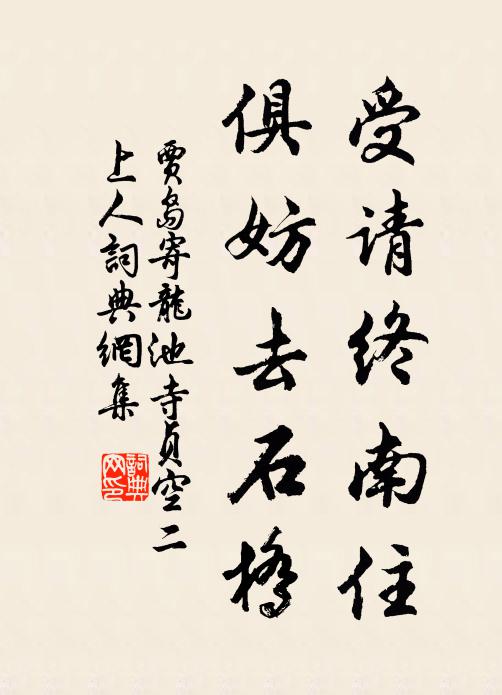 受请终南住
俱妨去石桥
賈島寄龍池寺貞空二
上人詞典網集
詞典网印